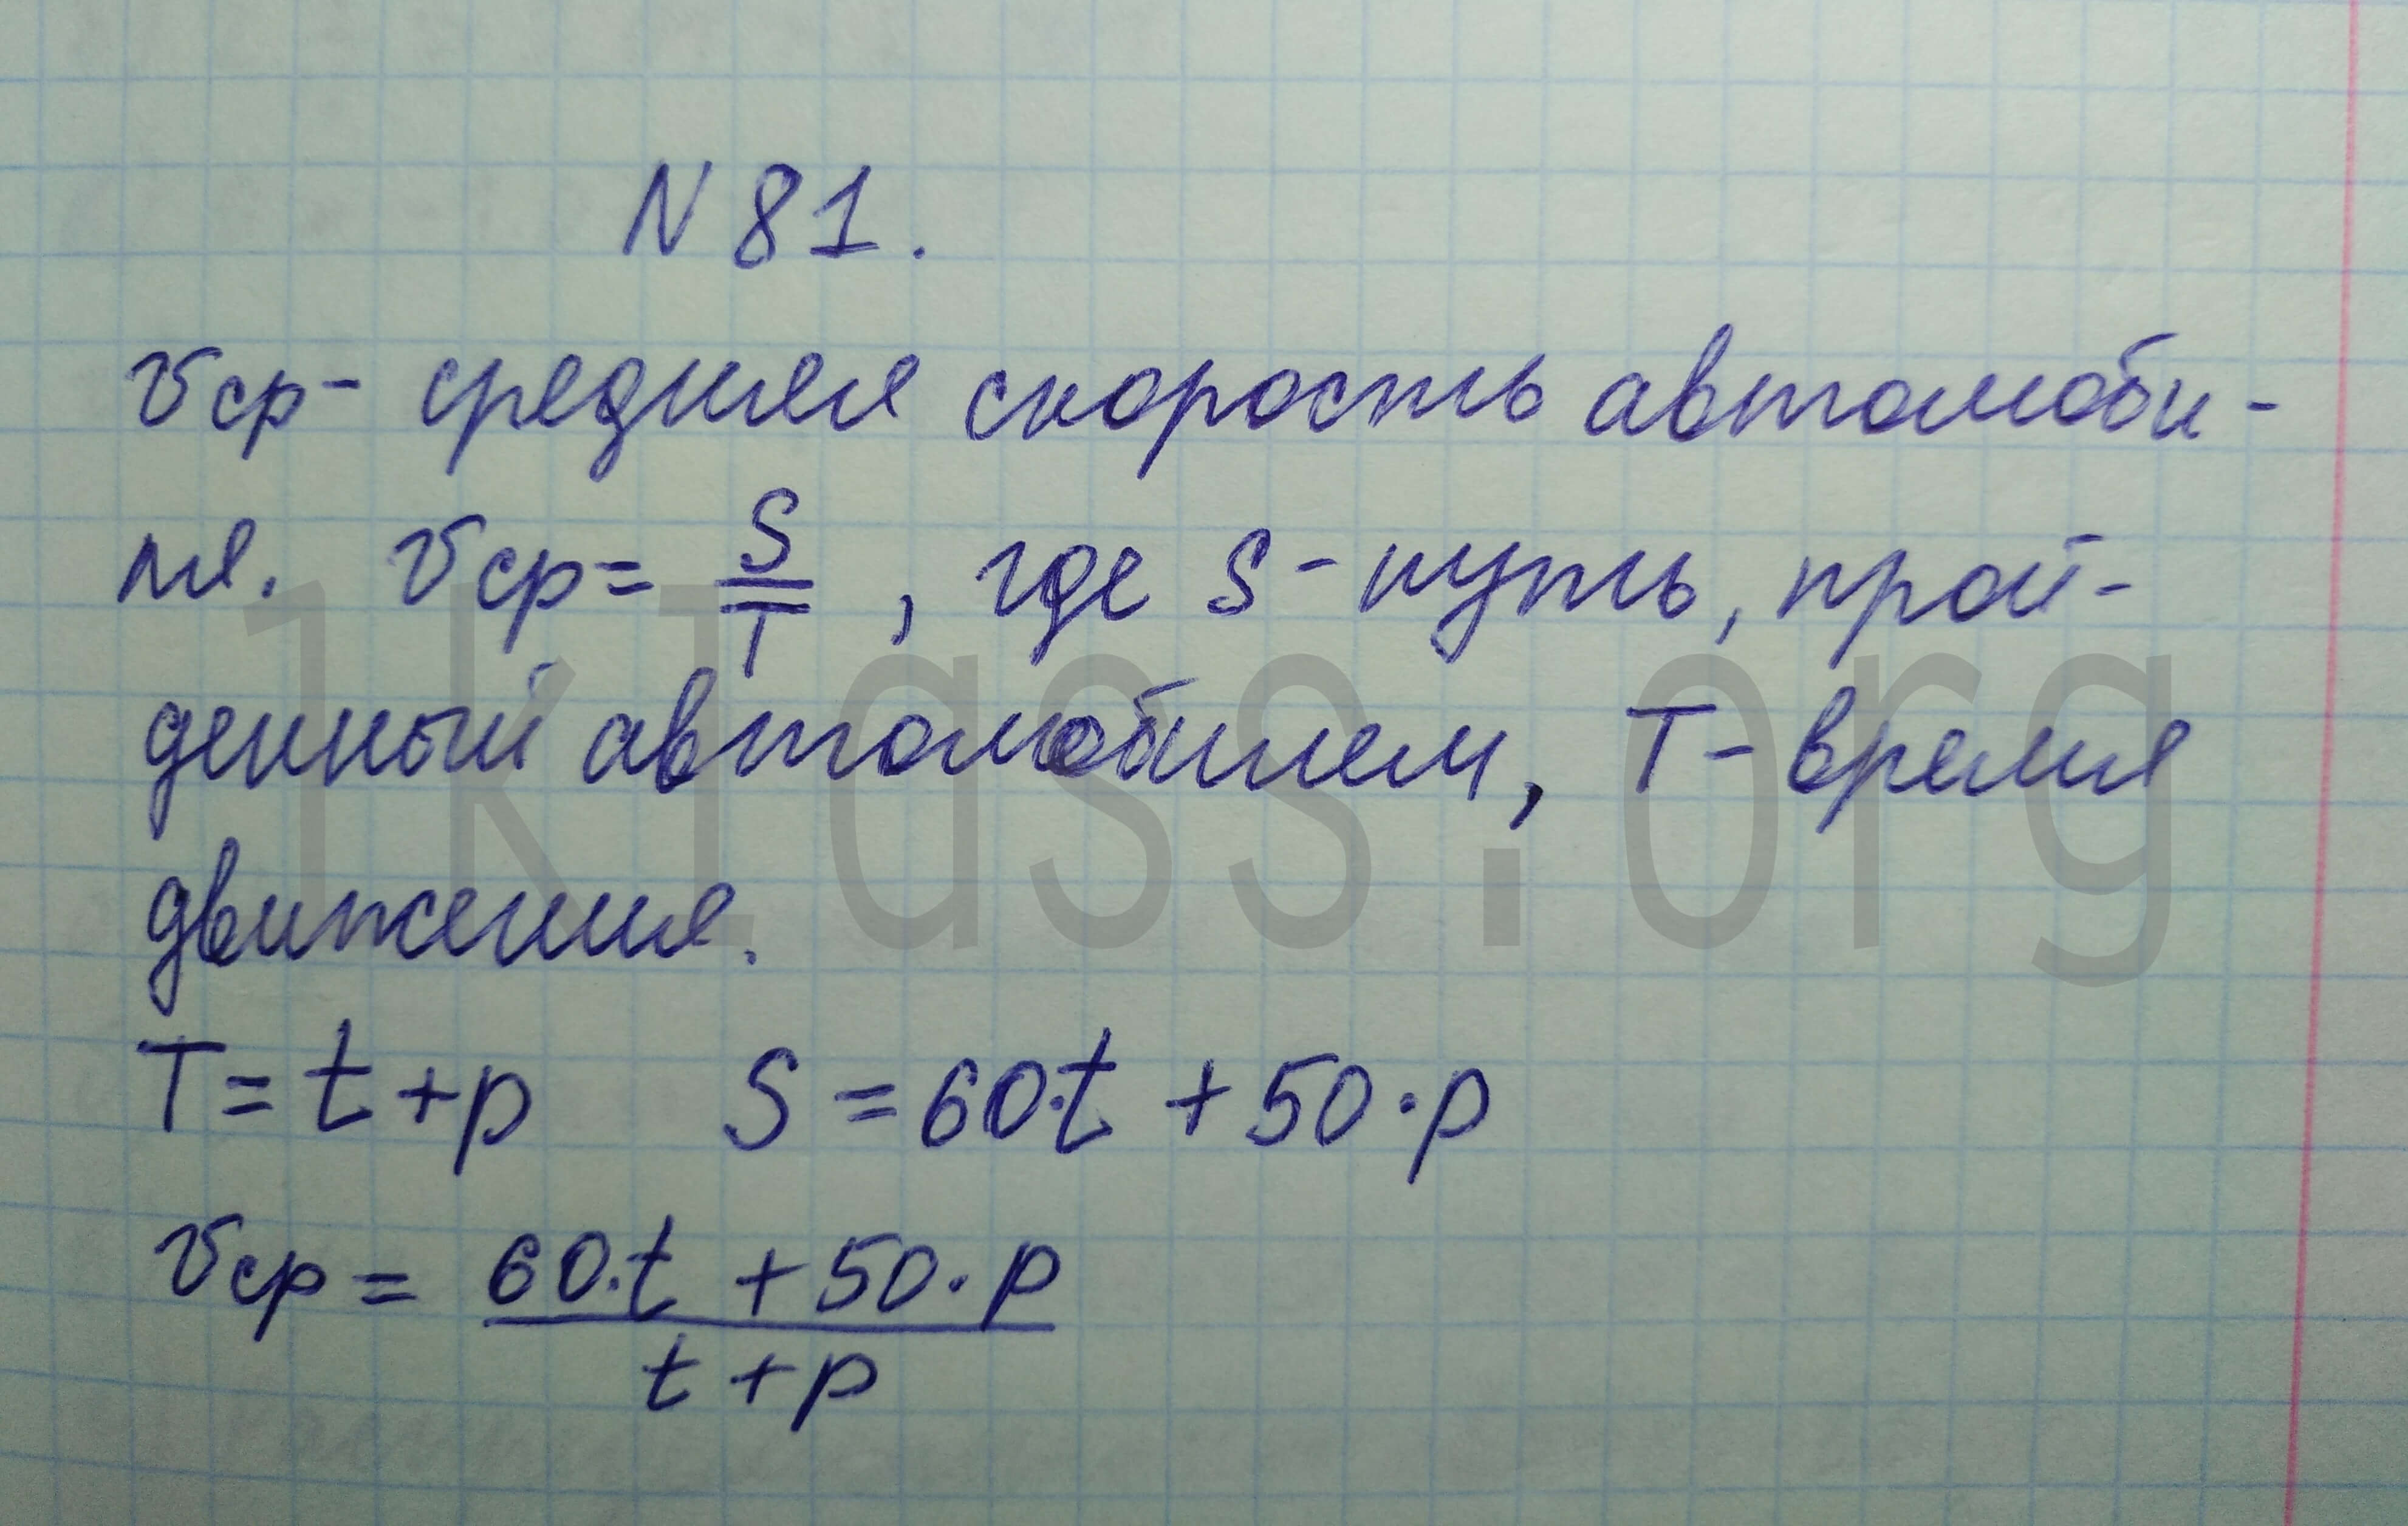 N 81.
vср - средняя скорость автомоби-
ля. vср = S/T, где S - путь, прой-
денный автомобилем, T - время
движения.
T = t + p S = 60·t + 50·p
vср = (60·t + 50·p)/(t + p)
1klass.org